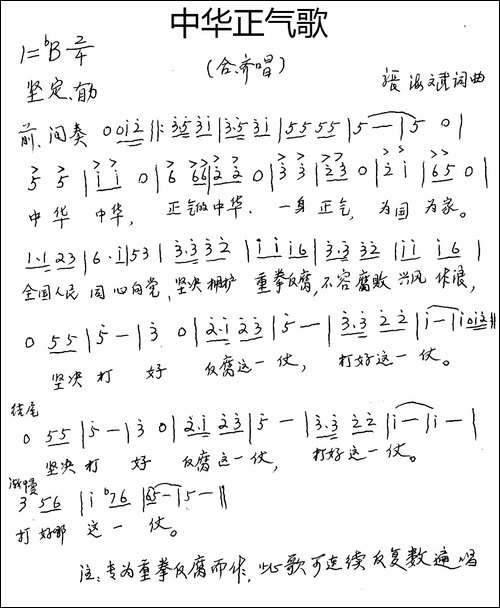 中华正气歌
1=ᵇB 2/4
(合.齐唱)
坚定、有力
张海文建词曲
前、间奏 0 0 i 2 ‖: 3·5 3 i | 3·5 3 i | 5 5 5 5 | 5 — | 5 0 |
5 5 | i i 0 | 6 6 6 | 2 2 0 | 3 3 | 2 3 0 | 2 i | 6 5 0 |
中 华 中华, 正气的中华. 一身 正气, 为国 为家。
1·1 2 3 | 6·i | 5 3 | 3·3 3 2 | i i i 6 | 3·3 3 2 | i i i 6 |
全国人民 同心向党, 坚决拥护 重拳反腐, 不容腐败 兴风 作浪,
0 5 5 | 5 — | 3 0 | 2·i 2 3 | 5 — | 3·3 2 2 | i — | i 0 i 2 :‖
坚决 打 好 反腐这一 仗, 打好这一 仗。
结尾
0 5 5 | 5 — | 3 0 | 2·i 2 3 | 5 — | 3·3 2 2 | i — | i — |
坚决 打 好 反腐 这一 仗, 打好这一 仗。
渐慢
3 5 6 | i ᵇ7 6 | 6 5 — | 5 — ‖
打 好那 这 一 仗。
注: 专为重拳反腐而作, 此歌可连续反复数遍唱